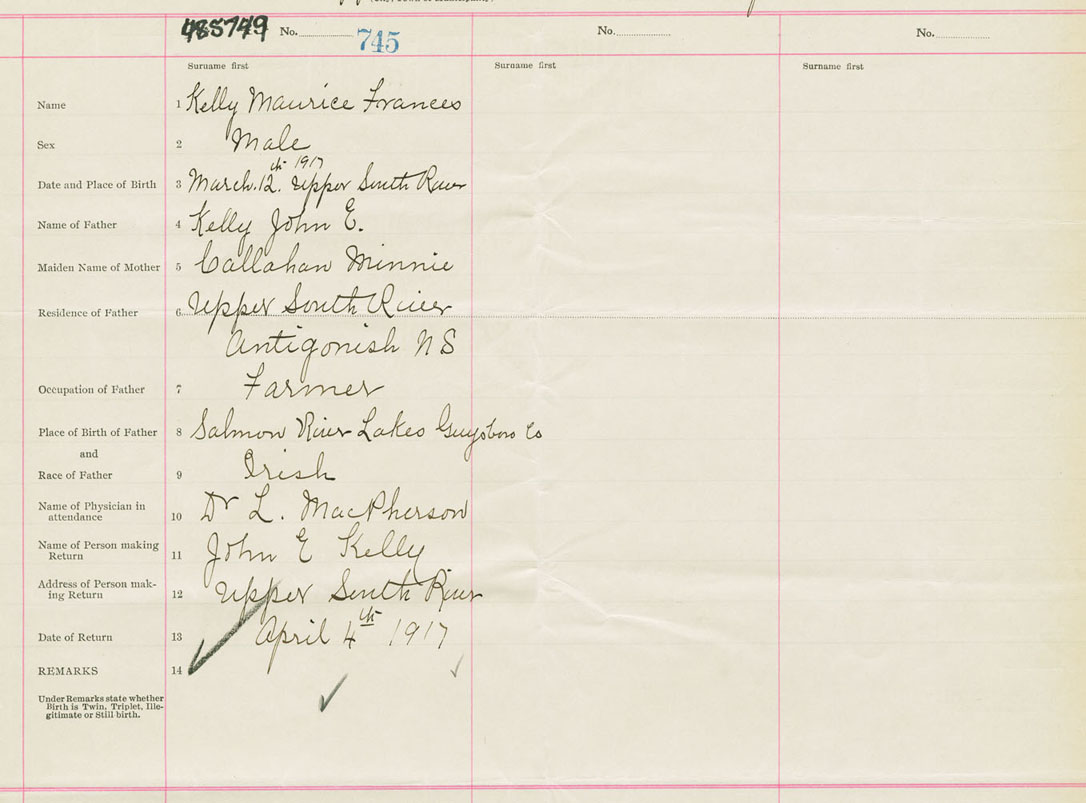 485749 No. 745 No. No.
Surname first Surname first Surname first
Name 1 Kelly Maurice Frances
Sex 2 Male
th 1917
Date and Place of Birth 3 March. 12. Upper South River
Name of Father 4 Kelly John E.
Maiden Name of Mother 5 Callahan Minnie
Residence of Father 6 Upper South River
Antigonish NS
Occupation of Father 7 Farmer
Place of Birth of Father 8 Salmon River Lakes Guysboro Co
and
Race of Father 9 Irish
Name of Physician in
attendance 10 Dr L. MacPherson
Name of Person making
Return 11 John E Kelly
Address of Person mak-
ing Return 12 Upper South River
Date of Return 13 April 4th 1917
REMARKS 14
Under Remarks state whether
Birth is Twin, Triplet, Ille-
gitimate or Still birth.